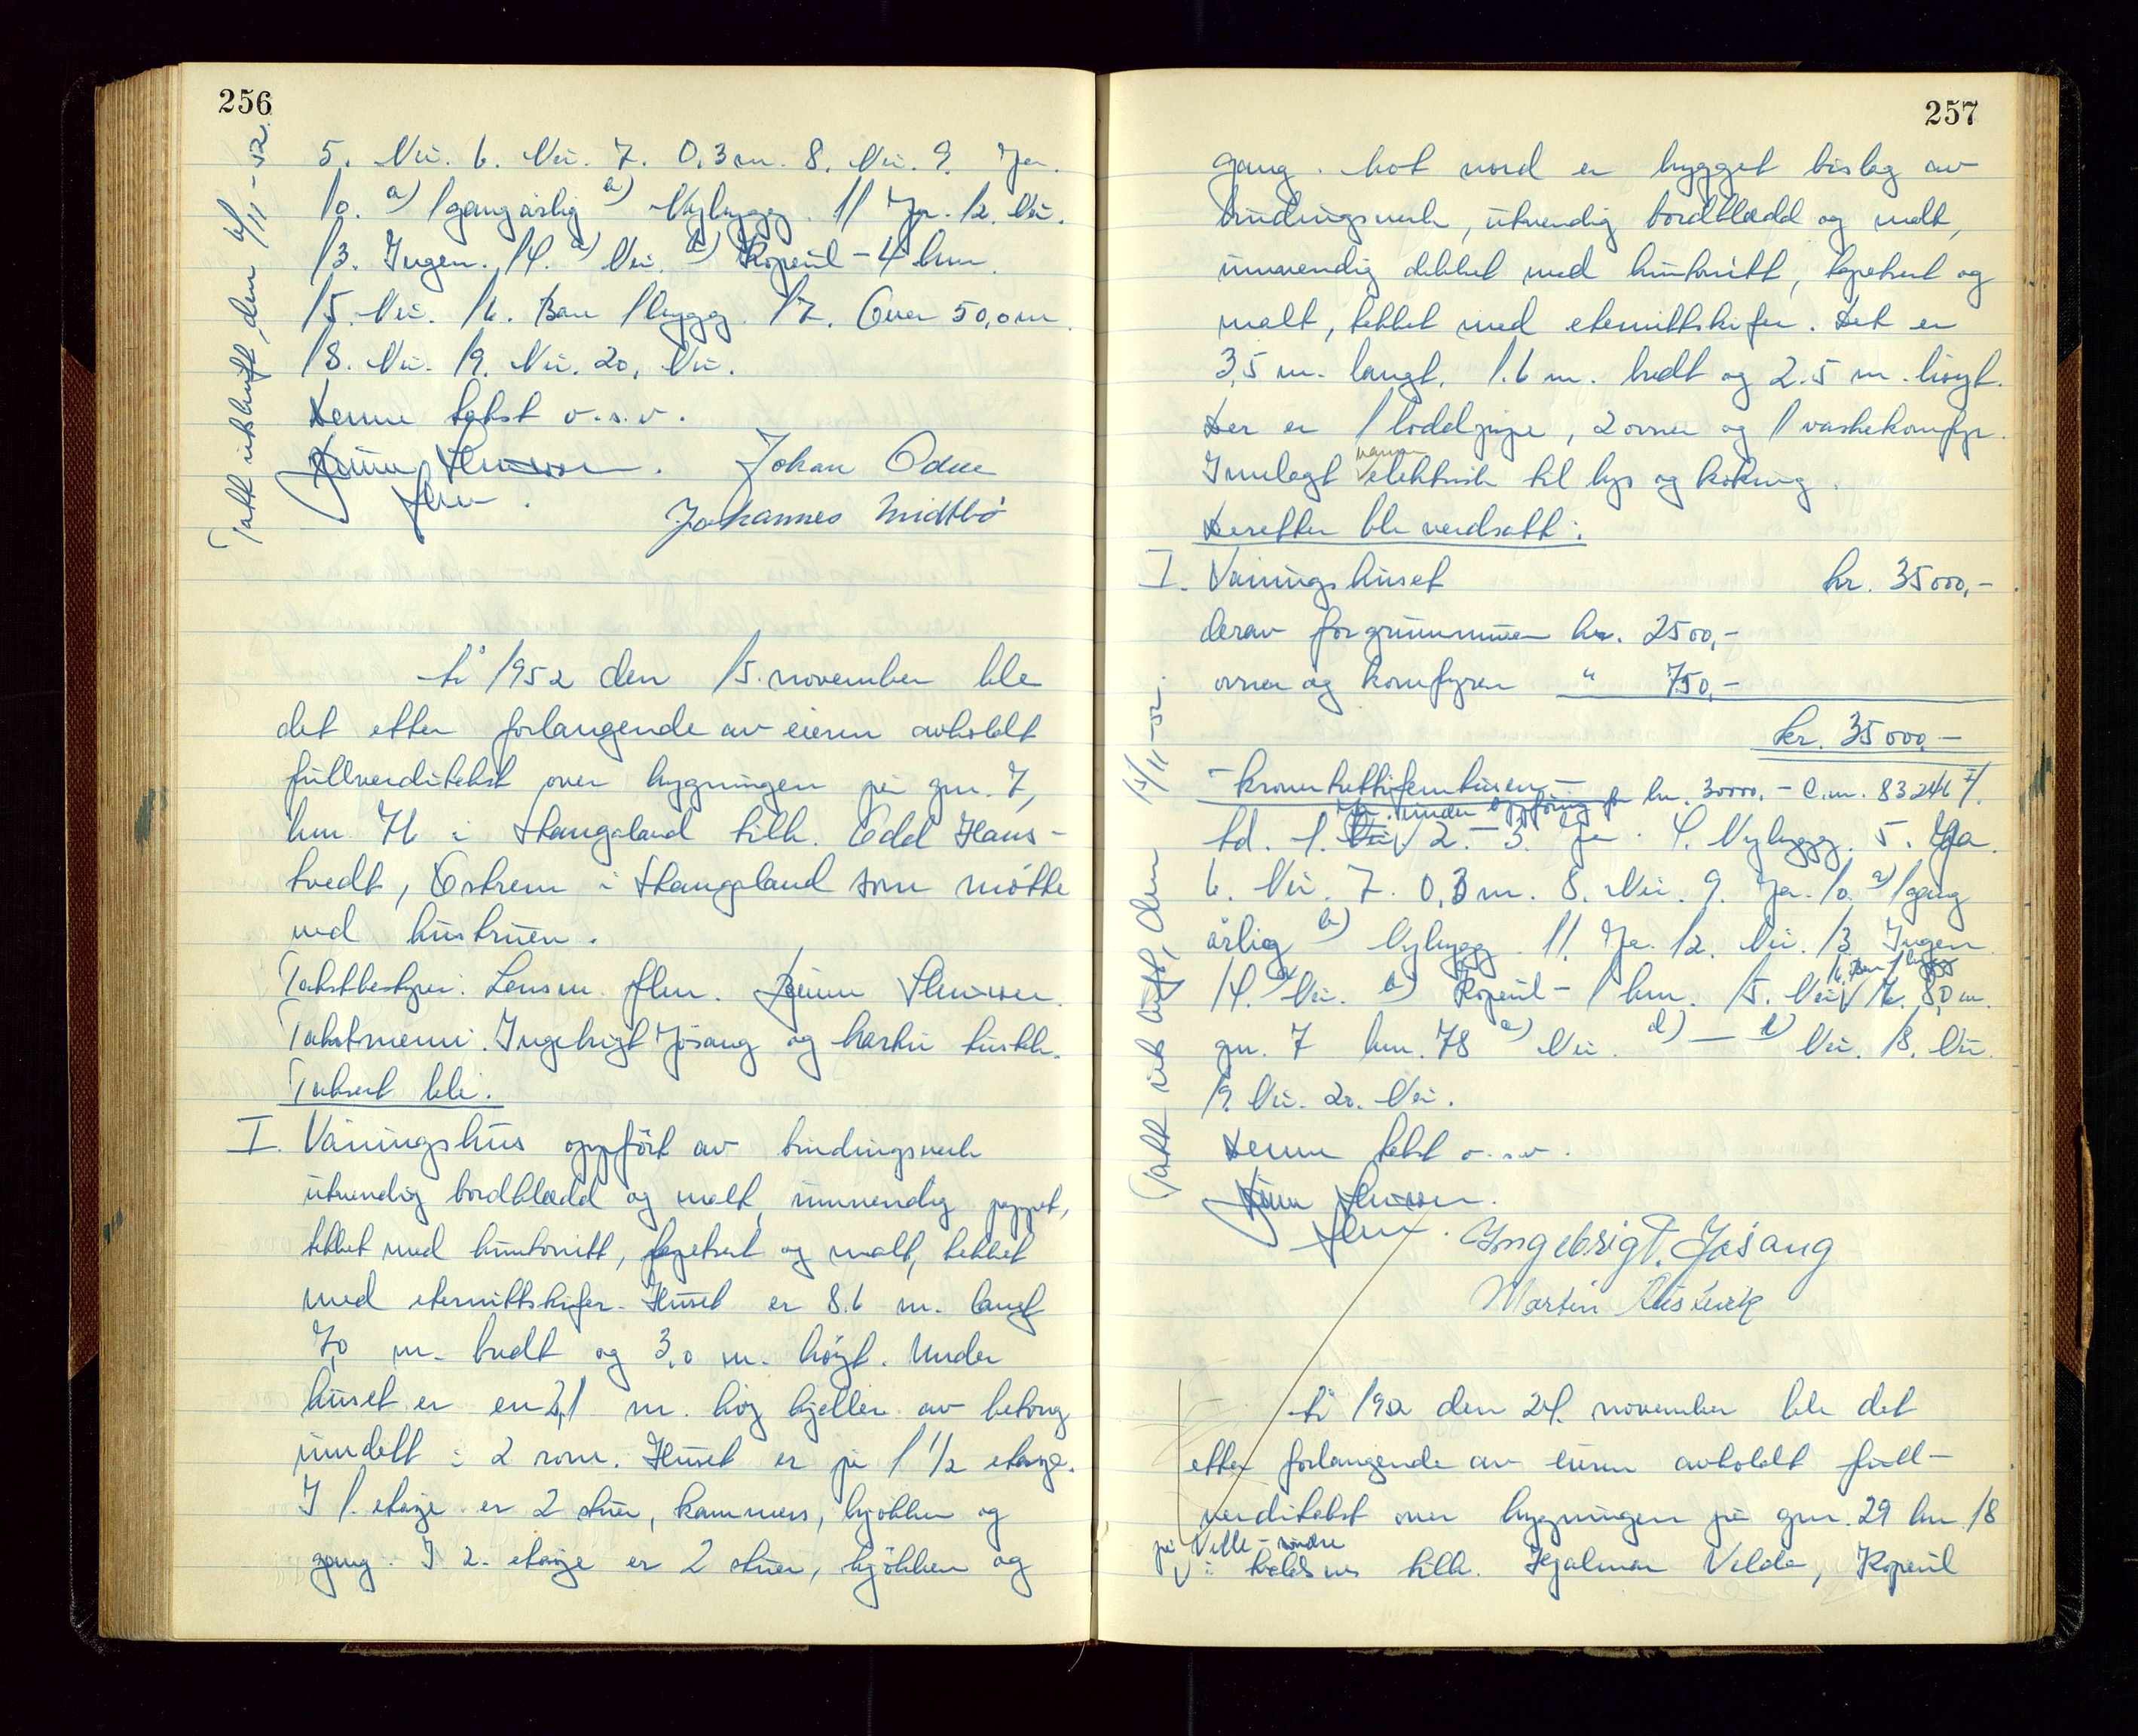 256
5. Nei. 6. Nei. 7. 0,3 m. 8. Nei. 9. Ja.
10. a) 1 gang årlig b) Nybygg. 11 Ja. 12. Nei.
13. Ingen. 14. a) Nei. b) Kopervik - 4 km.
15. Nei. 16. Bare 1 bygg. 17. Over 50,0 m.
18. Nei. 19. Nei. 20. Nei.
Denne takst o.s.v.
Johan Odne
Johannes Midtbö
Takst utskrift, den 6/11-52.
År 1952 den 15. november ble
det etter forlangende av eieren avholdt
fullverditakst over bygningen på gnr. 7,
bnr. 76 i Skangaland tilh. Odd Haus-
tvedt, Østrem i Skangaland som møtte
ved hustruen.
Takstbestyrer. Lensm. flm.
Takstmenn. Ingebrigt Jøsang og Martin
Taksert ble:
I. Våningshus oppført av bindingsverk
utvendig bordklædd og malt, innvendig pappet,
tekket med huntonitt, tapetsert og malt, tekket
med eternittskifer. Huset er 8.6 m. langt
7,0 m. bredt og 3,0 m. høyt. Under
huset er en 2,1 m. høy kjeller av betong
inndelt i 2 rom. Huset er på 1 1/2 etasje.
I 1. etasje er 2 stuer, kammers, kjøkken og
gang. I 2. etasje er 2 stuer, kjøkken og
257
gang. Mot nord er bygget bislag av
bindingsverk, utvendig bordklædd og malt,
innvendig dekket med huntonitt, tapetsert og
malt, tekket med eternittskifer. Det er
3,5 m. langt, 1.6 m. bredt og 2.5 m. høyt.
Der er 1 loddpipe, 2 ovner og 1 vaskekomfyr.
Innlagt vann elektrisk til lys og koking.
Deretter ble verdsatt:
I. Våningshuset kr. 35000,-
derav for grunnmuren kr. 2500,-
ovner og komfyren " 750,-
kr. 35000,-
- kroner trettifemtusen -
Ja. under oppføring for kr. 30000,- C.nr. 83246
td. 1. Nei 2. - 3. Ja. 4. Nybygg. 5. Ja.
6. Nei. 7. 0,3 m. 8. Nei. 9. Ja. 10. a) 1 gang
årlig b) Nybygg. 11. Ja. 12. Nei. 13. Ingen.
16. Bare 1 bygg
14. a) Nei. b) Kopervik - 1 km. 15. Nei 17. 8,0 m.
gnr. 7 bnr. 78 c) Nei. d) - e) Nei. 18. Nei.
19. Nei. 20. Nei.
Denne takst o.s.v.
Ingebrigt Jøsang
Martin
Takst utskrift, den 17/11-52.
År 1952 den 24. november ble det
etter forlangende av eieren avholdt full-
verditakst over bygningen på gnr. 29 bnr. 18
på Velle - søndre
i tilh. Hjalmar Velde, Kopervik